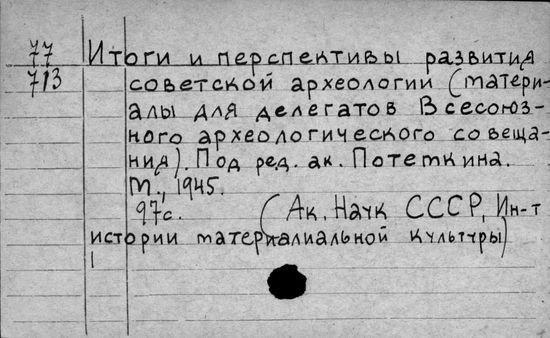 77 Итоги и перспективы развития
713 советской археологии (матери-
алы для делегатов Всесоюз-
ного археологического совеща-
ния). Под ред. ак. Потемкина.
М., 1945.
97с. (Ак. Наук СССР, Ин-т
истории материалиальной культуры)